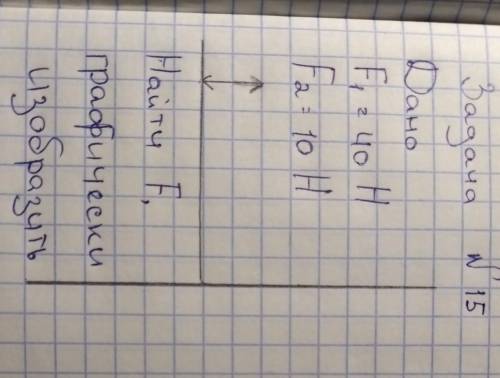 Задача №15
Дано
F₁ = 40 Н
F₂ = 10 Н
Найти F,
графически
изобразить